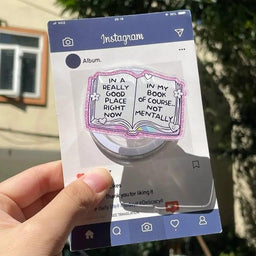 Instagram
Album.
IN A
REALLY
GOOD
PLACE
RIGHT
NOW
IN MY
BOOK
OF COURSE..
NOT
MENTALLY.
you for liking it